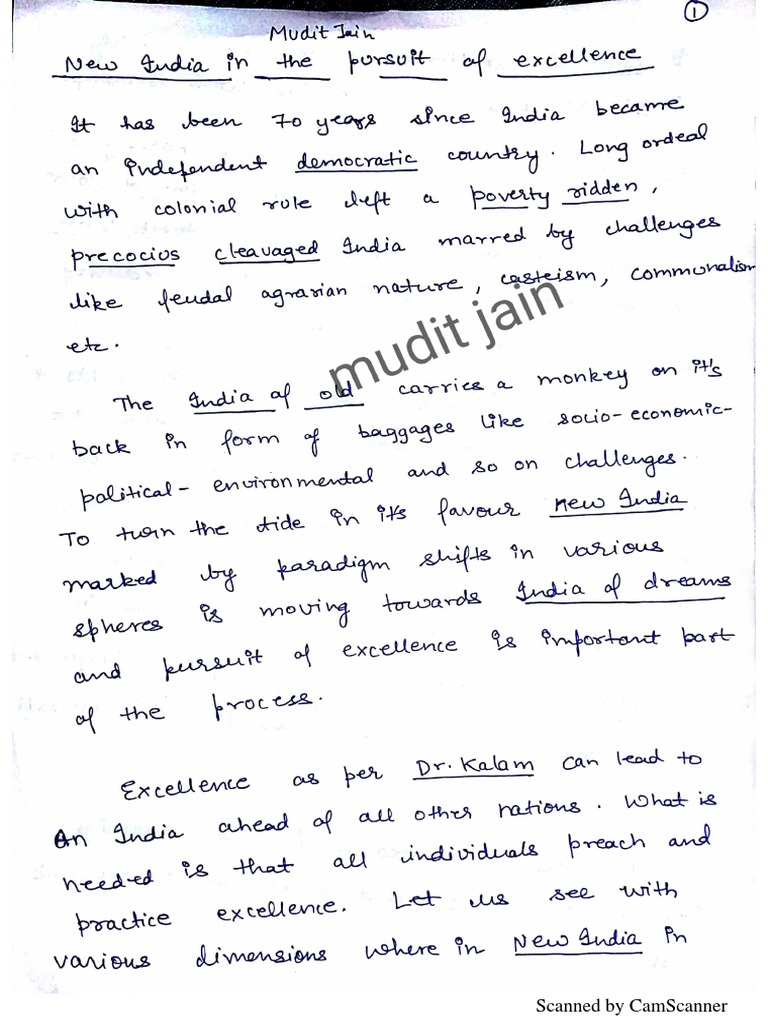 1
Mudit Jain
New India in the pursuit of excellence
It has been 70 years since India became
an independent democratic country. Long ordeal
with colonial rule left a poverty ridden,
precocius cleavaged India marred by challenges
like feudal agrarian nature, casteism, communalism
etc.
mudit jain
The India of old carries a monkey on it's
back in form of baggages like socio-economic-
political- environmental and so on challenges.
To turn the tide in it's favour new India
marked by paradigm shifts in various
spheres is moving towards India of dreams
and pursuit of excellence is important part
of the process.
Excellence as per Dr. Kalam can lead to
an India ahead of all other nations. What is
needed is that all individuals preach and
practice excellence. Let us see with
various dimensions where in New India in
Scanned by CamScanner